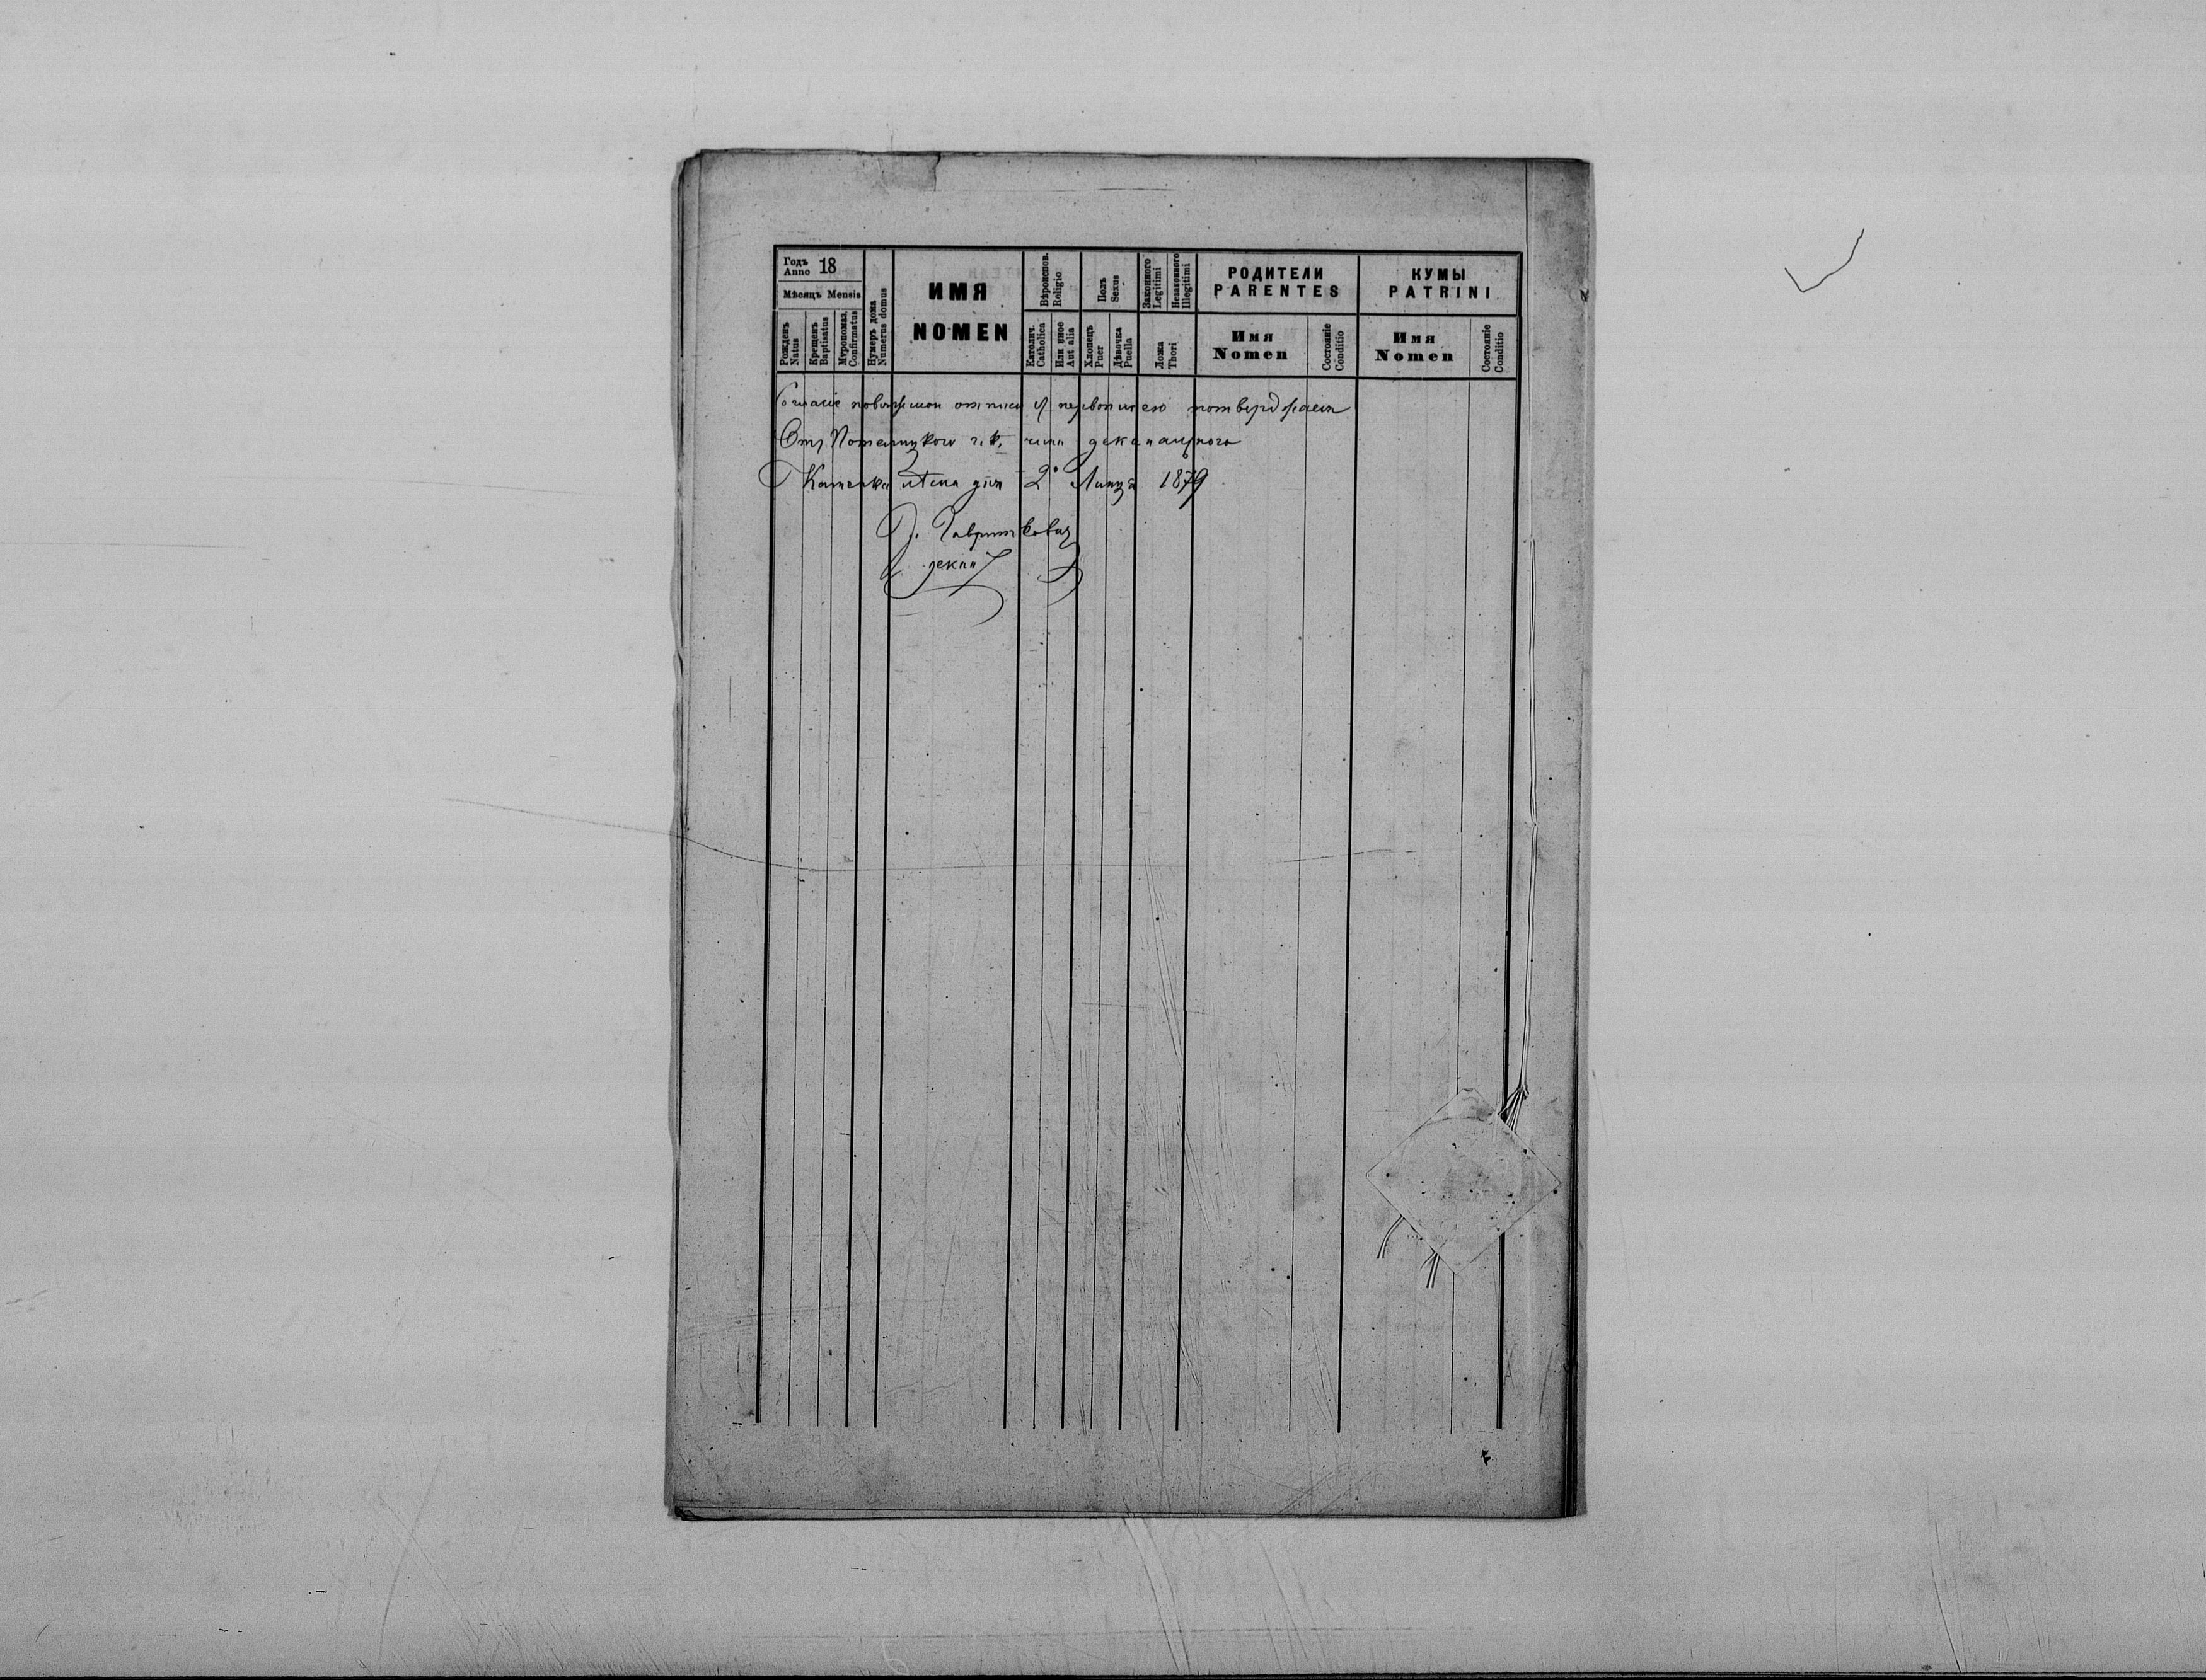 Годъ Anno 18
Мѣсяцъ Mensis
Рожденъ Natus
Крещенъ Baptisatus
Мѵропомаз. Confirmatus
Нумеръ дома Numerus domus
ИМЯ
NOMEN
Вѣроиспов. Religio
Католич. Catholica
Или иное Aut alia
Полъ Sexus
Хлопецъ Puer
Дѣвочка Puella
Законного Legitimi
Незаконного Illegitimi
Ложа Thori
РОДИТЕЛИ
PARENTES
Имя
Nomen
Состояніе Conditio
КУМЫ
PATRINI
Имя
Nomen
Состояніе Conditio
Согласіе повысшои отписи съ первописею потверджаеся
Отъ г. к. деканального
Каменка дня 2° Липця 1879
деканъ